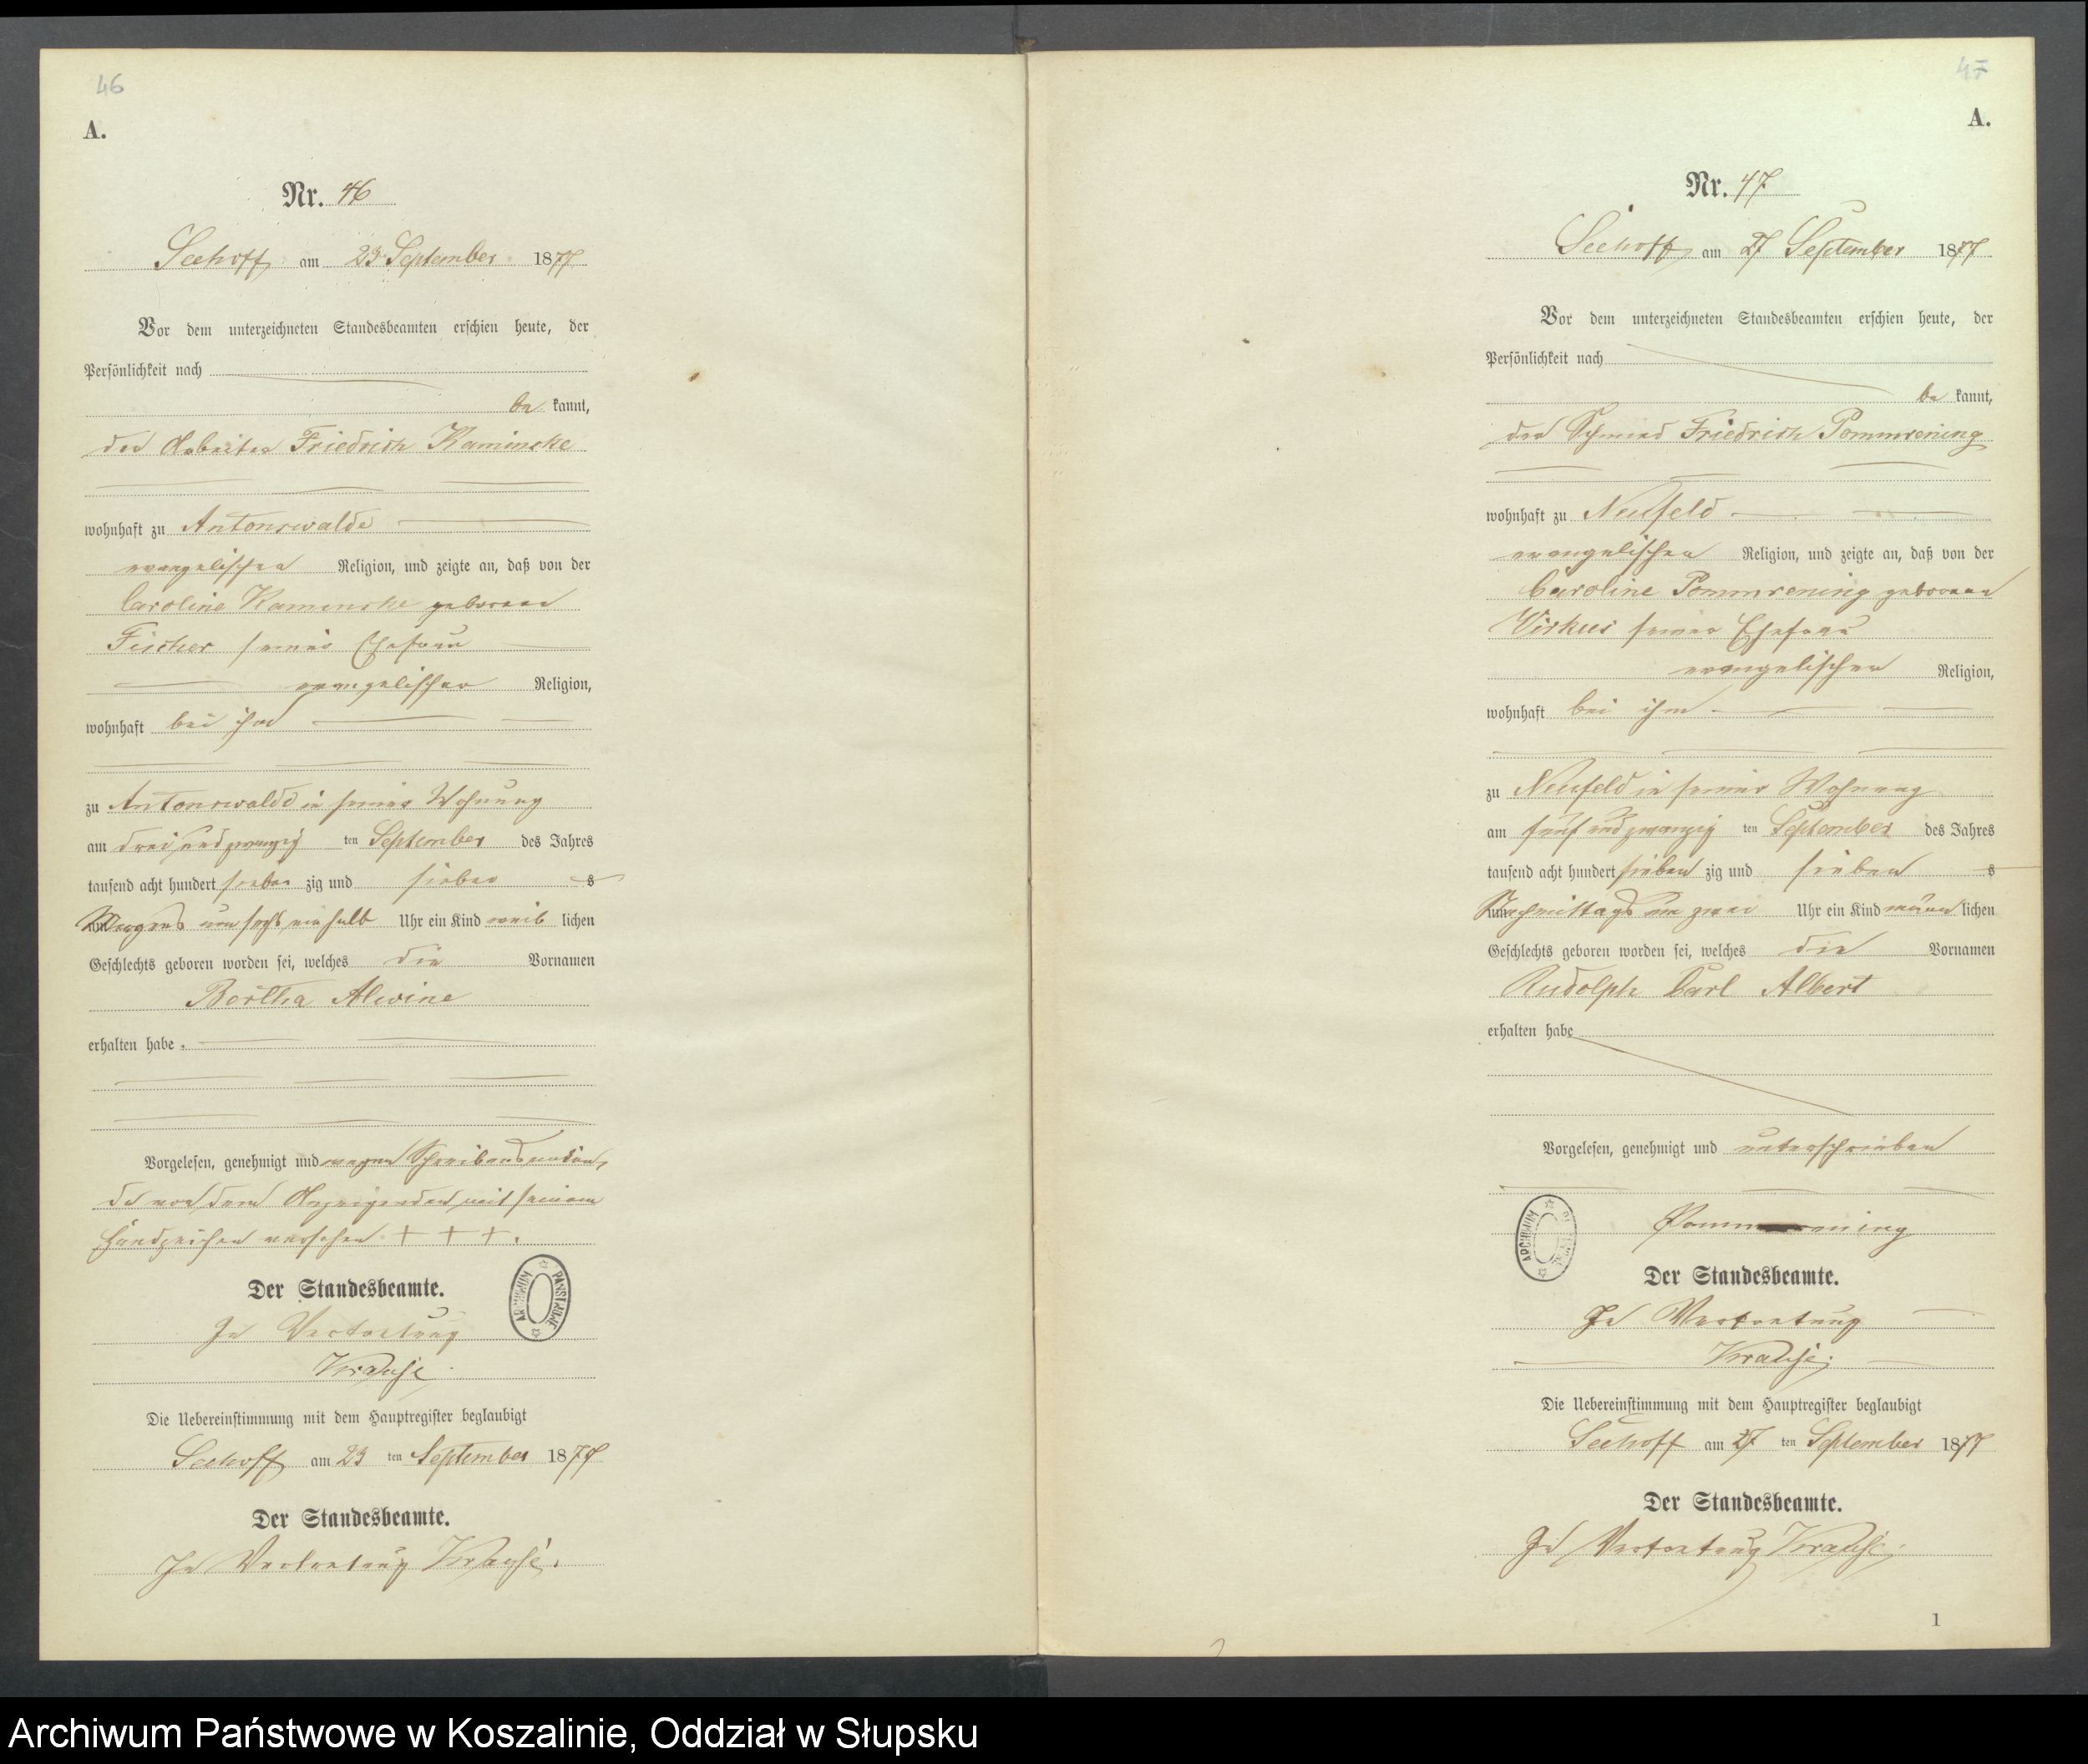 46
A.
Nr. 46
Seehoff am 23 September 1877
Vor dem unterzeichneten Standesbeamten erschien heute, der
Persönlichkeit nach
be kannt,
der Arbeiter Friedrich Kaminske
wohnhaft zu Antonswalde
evangelischer Religion, und zeigte an, daß von der
Caroline Kaminske geborene
Fischer seiner Ehefrau
evangelischer Religion,
wohnhaft bei ihm
zu Antonswalde in seiner Wohnung
am drei und zwanzig ten September des Jahres
tausend acht hundert sieben zig und sieben s
Morgens um sechs ein halb Uhr ein Kind weib lichen
Geschlechts geboren worden sei, welches die Vornamen
Bertha Alwine
erhalten habe.
Vorgelesen, genehmigt und wegen Schreibens
de von dem Anzeigenden mit seinem
Handzeichen versehen + + +.
Der Standesbeamte.
In Vertretung
Krause
ARCHIWUM PAŃSTWOWE
Die Uebereinstimmung mit dem Hauptregister beglaubigt
Seehoff am 23 ten September 1877
Der Standesbeamte.
In Vertretung Krause.
47
A.
Nr. 47
Seehoff am 27 September 1877
Vor dem unterzeichneten Standesbeamten erschien heute, der
Persönlichkeit nach
be kannt,
der Schmied Friedrich Pommrening
wohnhaft zu Neufeld
evangelischer Religion, und zeigte an, daß von der
Caroline Pommrening geborene
Virkus seiner Ehefrau
evangelischer Religion,
wohnhaft bei ihm
zu Neufeld in seiner Wohnung
am fünf und zwanzig ten September des Jahres
tausend acht hundert sieben zig und sieben s
Nachmittags um zwei Uhr ein Kind männ lichen
Geschlechts geboren worden sei, welches die Vornamen
Rudolph Carl Albert
erhalten habe
Vorgelesen, genehmigt und unterschrieben
ARCHIWUM
Der Standesbeamte.
In Vertretung
Krause.
Die Uebereinstimmung mit dem Hauptregister beglaubigt
Seehoff am 27 ten September 1877
Der Standesbeamte.
In Vertretung Krause.
1
Archiwum Państwowe w Koszalinie, Oddział w Słupsku